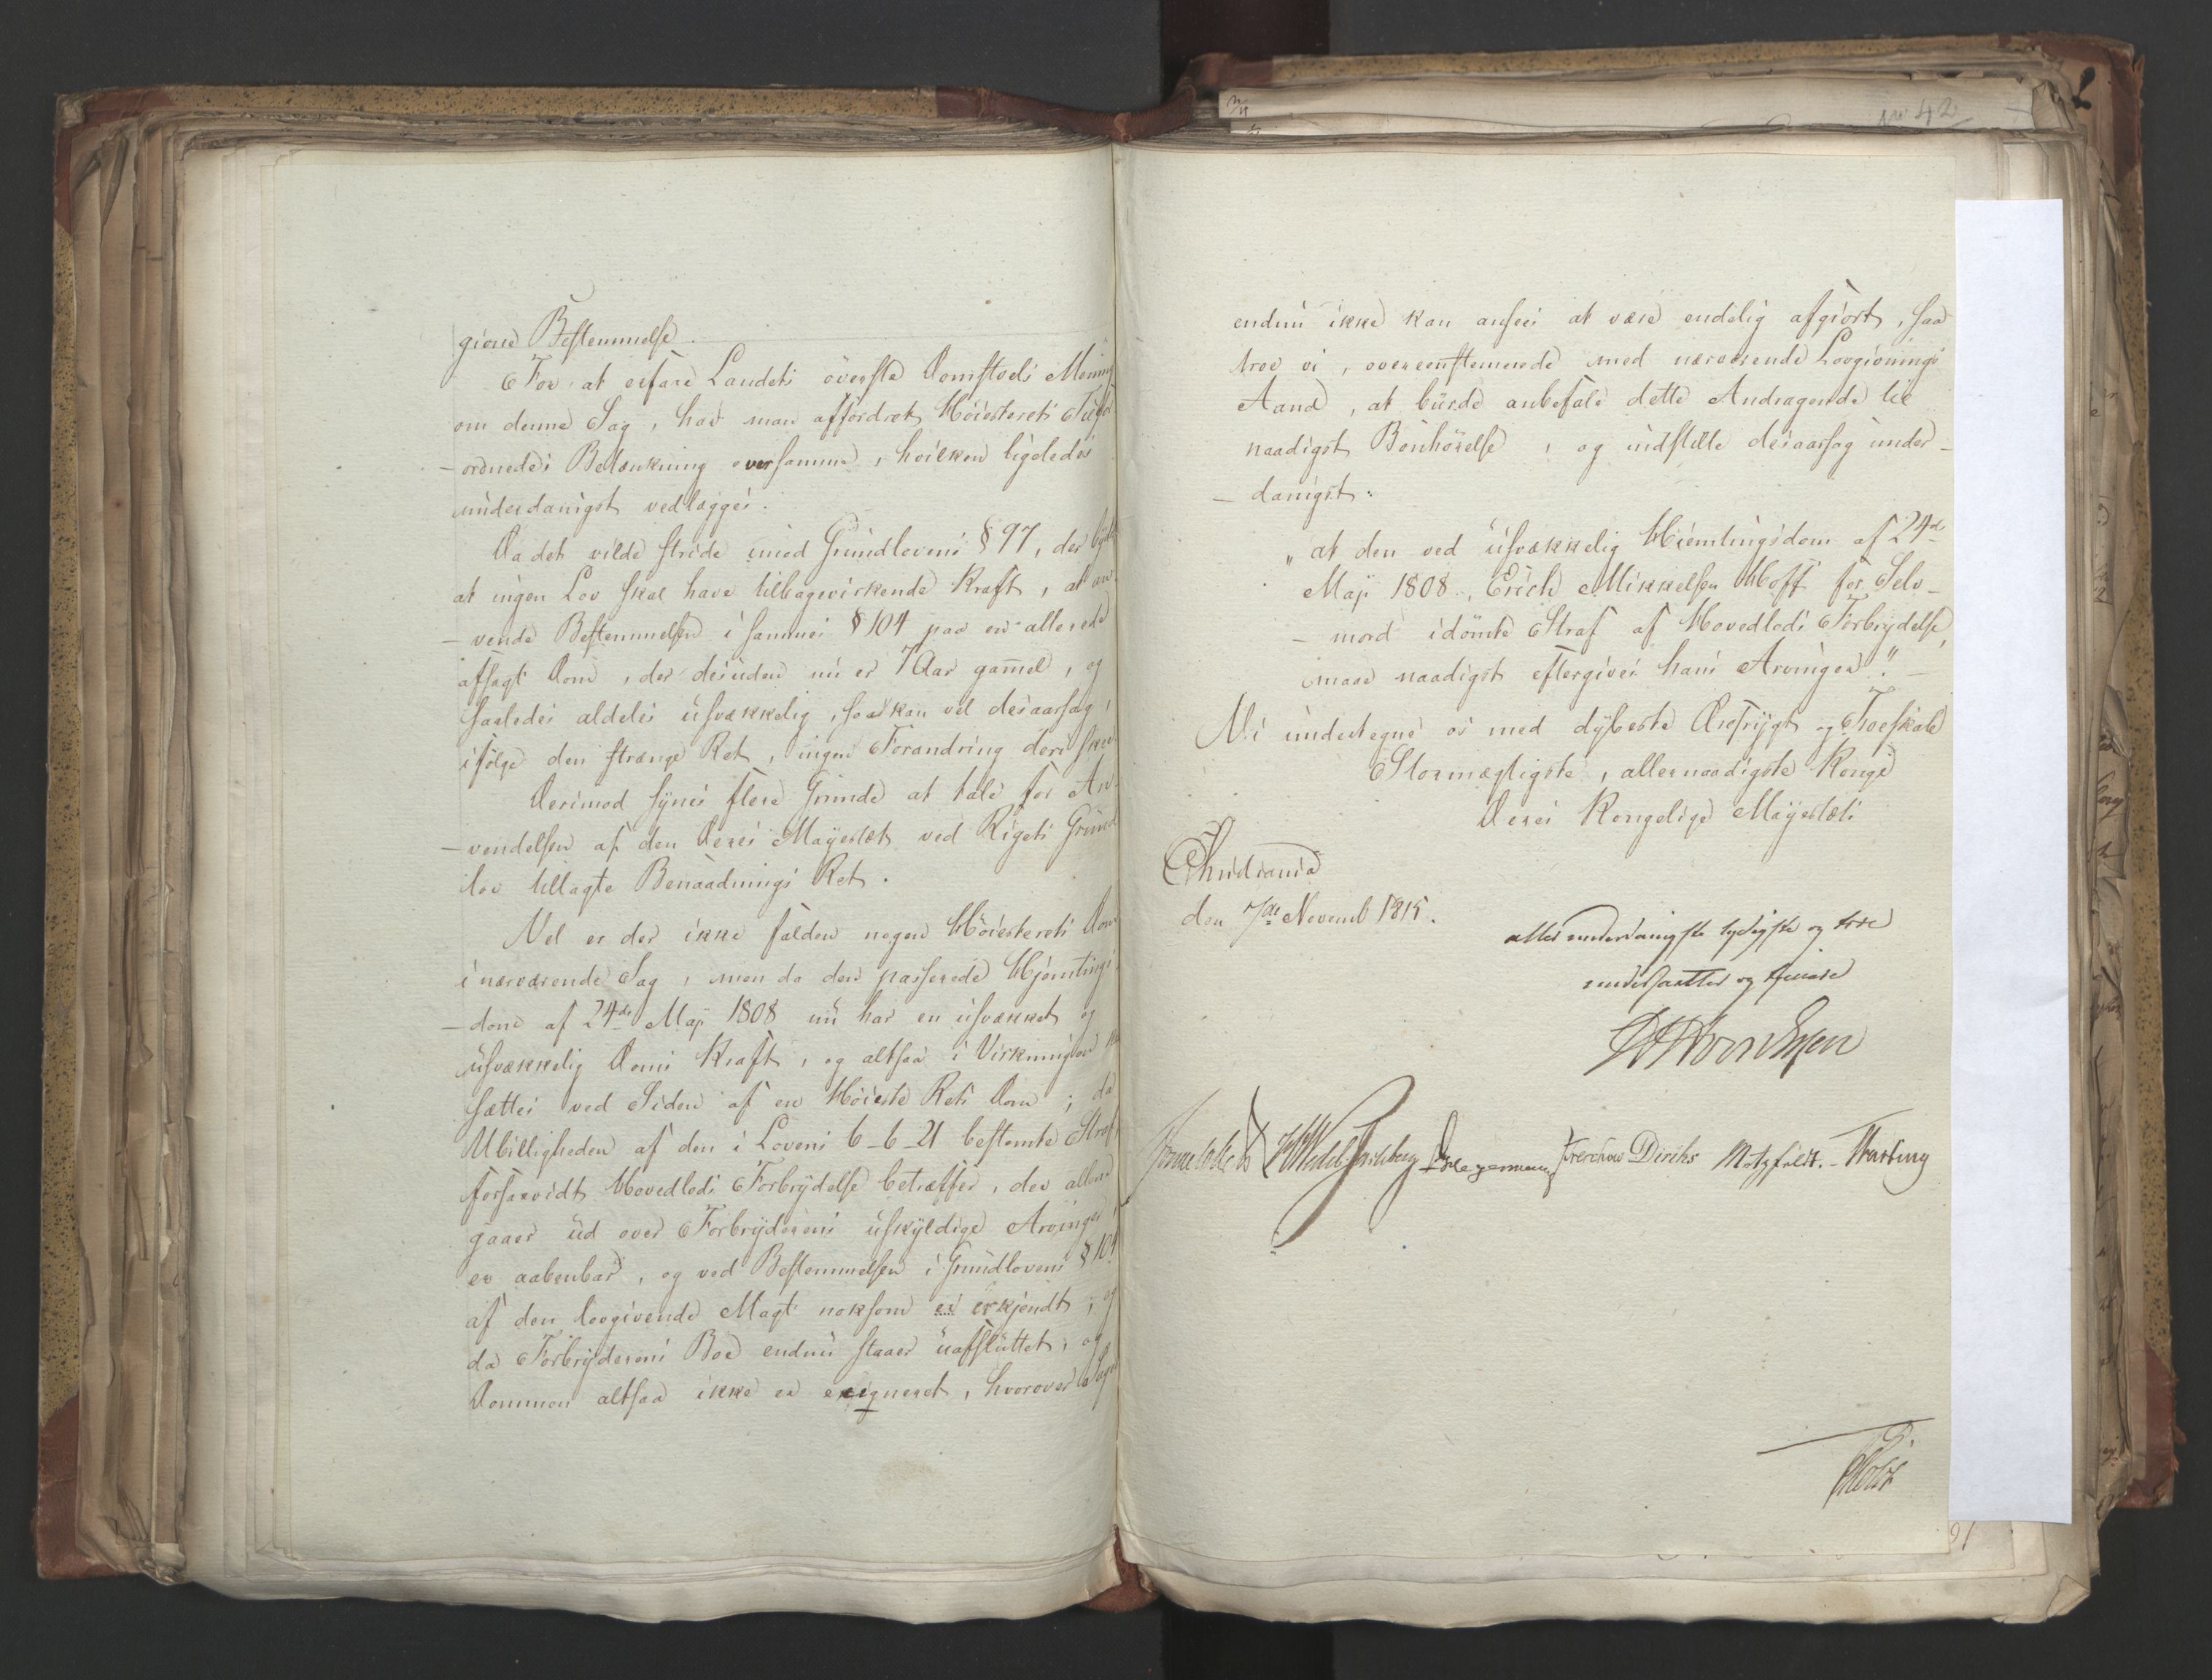 giøre Bestemmelse.
For at erfare Landets överste Domstols Mening
om denne Sag, har man affordret Höiesterets Tilfor
-ordnedes Betænkning over samme, hvilken ligeledes
underdanigst vedlægges.
Da det vilde stride mod Grundlovens § 97, der byder
at ingen Lov skal have tilbagevirkende Kraft, at an-
-vende Bestemmelsen i sammes § 104 paa en allerede
afsagt Dom, der desuden nu er 7 Aar gammel, og
saaledes aldeles usvækkelig, saa kan vel desaarsag,
ifölge den strænge Ret, ingen Forandring deri skee
Derimod synes flere Grunde at tale for An-
-vendelsen af den Deres Mayestæt ved Rigets Grund
lov tillagte Benaadnings Ret.
Vel er der ikke falden nogen Höiesterets Dom
i nærværende Sag, men da den passerede Hjemtings
-dom af 24de Maji 1808 nu har en usvækket og
usvækkelig Doms Kraft, og altsaa i Virkningen
sættes ved Siden af en Höieste Rets Dom; da
Ubilligheden af den i Lovens 6-6-21 bestemte Straf
forsaavidt Hovedlods Forbrydelse betræffer, der allene
gaaer ud over Forbryderens uskyldige Arvinger
er aabenbar, og ved Bestemmelsen i Grundlovens § 104
af den lovgivende Magt noksom er erkjendt; og
da Forbryderens Boe endnu staaer uafsluttet, og
Dommen altsaa ikke er exeqveret, hvorover Sagen
no 42
endnu ikke kan ansees at være endelig afgiort, saa
troe vi, overeensstemmende med nærværende Lovgivnings
Aand, at burde anbefale dette Andragende til
naadigst Bönhörelse, og indstille desaarsag under-
-danigst:
„at den ved usvækkelig Hiemtingsdom af 24de
Maji 1808, Erich Mikkelsen Hoff for Selv-
-mord idömte Straf af Hovedlods Forbrydelse,
maae naadigst eftergives hans Arvinger."
Vi undertegne os med dybeste Ærefrygt og Troeskab
Stormægtigste, allernaadigste Konge
Deres Kongelige Mayestæts
Christiania
den 7de Novemb 1815.
allerunderdanigste lydigste og troe
undersaatter og tienere
Sommerhielm HWedelJarlsberg Hegermann Krerchow Diriks Motzfeldt. - Thesting
Holst